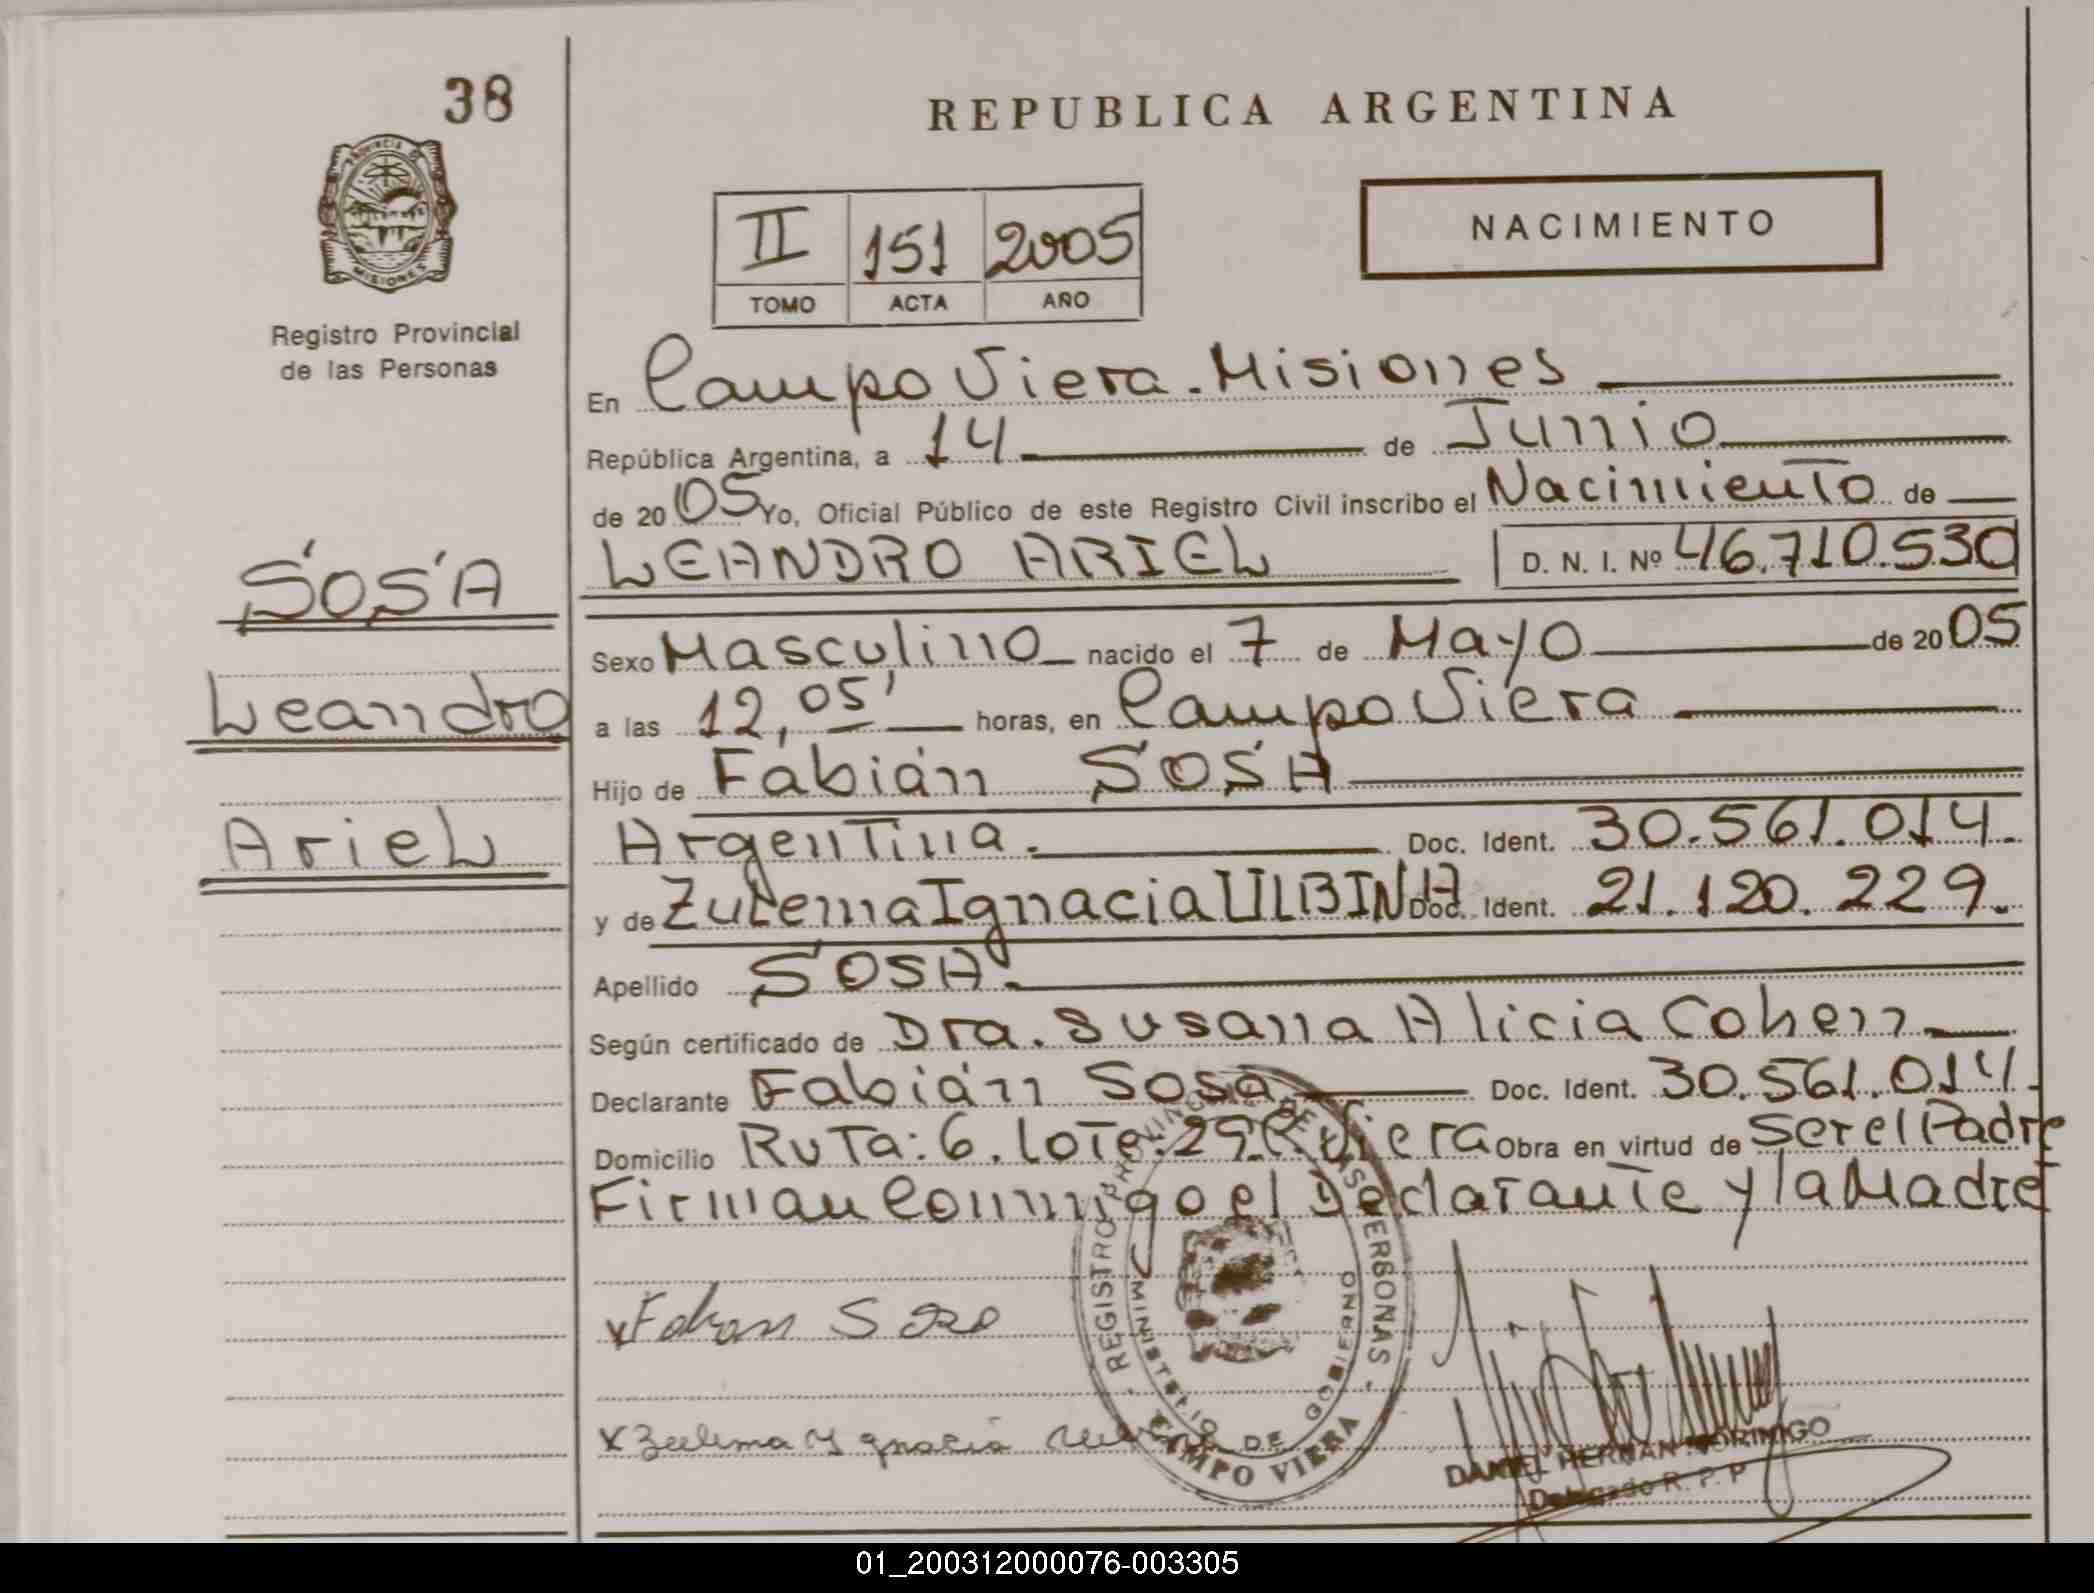 38
REPUBLICA ARGENTINA
PROVINCIA DE
MISIONES
Registro Provincial
de las Personas
NACIMIENTO
II 151 2005
TOMO ACTA AÑO
En Campo Viera. Misiones
República Argentina, a 14 de Junio
de 2005 Yo, Oficial Público de este Registro Civil inscribo el Nacimiento de
LEANDRO ARIEL D. N. I. Nº 46.710.530
SOSA
Leandro
Ariel
Sexo Masculino nacido el 7 de Mayo de 2005
a las 12,05' horas, en Campo Viera
Hijo de Fabián SOSA
Argentina. Doc. Ident. 30.561.014.
y de Zulema Ignacia ULBINA Doc. Ident. 21.120.229.
Apellido SOSA.
Según certificado de Dra. Susana Alicia Cohen
Declarante Fabián Sosa Doc. Ident. 30.561.014.
Domicilio Ruta: 6. Lote: 29 C. Viera Obra en virtud de ser el Padre
Firman Conmigo el Declarante y la Madre
REGISTRO PROVINCIAL DE LAS PERSONAS
MINISTERIO DE GOBIERNO
CAMPO VIERA
Fabian Sosa
x Zulema Ygnacia
DANIEL HERNAN MORINIGO
Delegado R. P. P
01_200312000076-003305